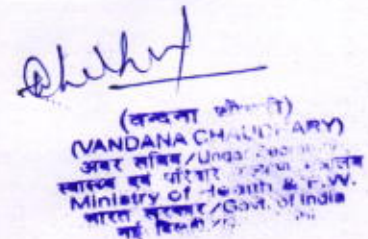 (वन्दना चौधरी)
(VANDANA CHAUDHARY)
अवर सचिव/Under
स्वास्थ्य एवं परिवार
Ministry of Health & F.W.
भारत सरकार/Govt. of India
नई दिल्ली